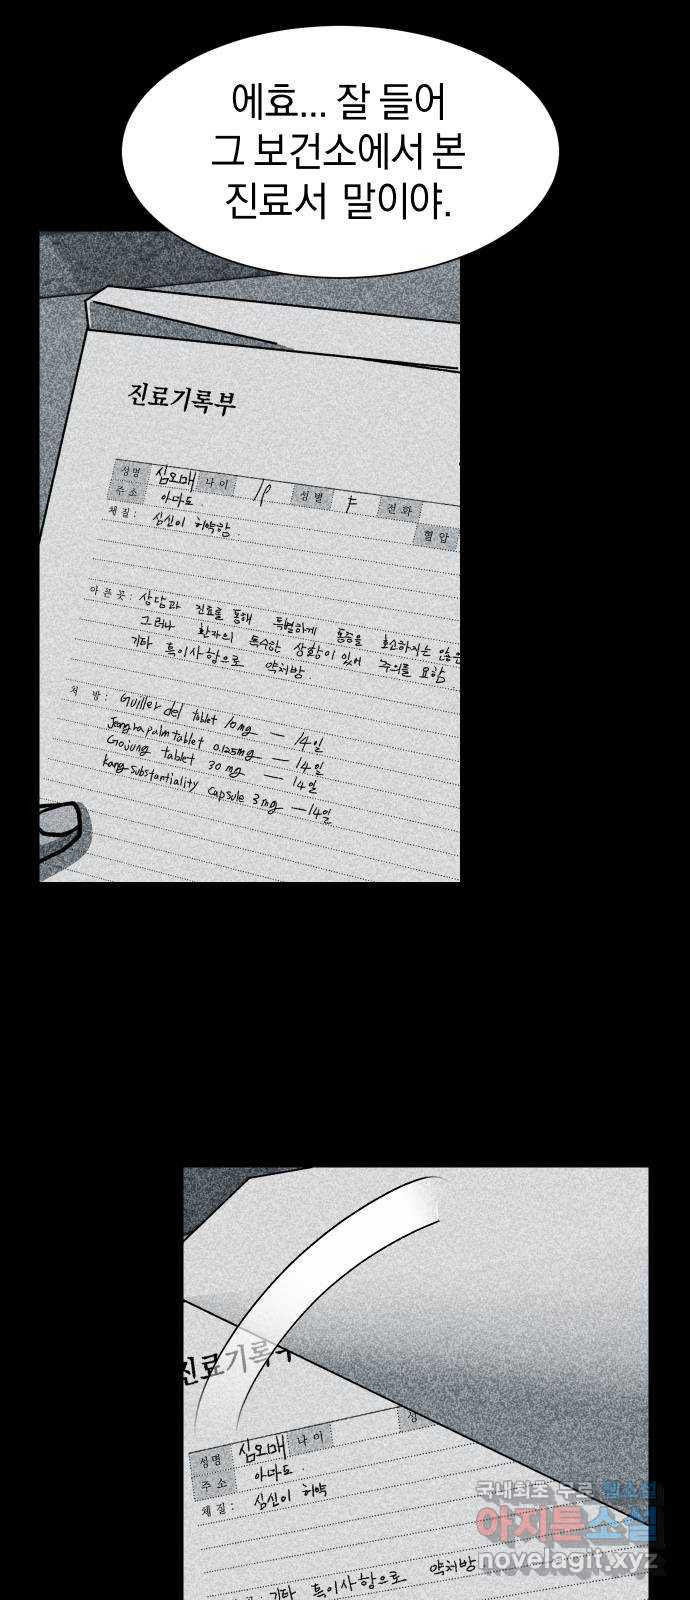 에효... 잘 들어
그 보건소에서 본
진료서 말이야.
진료기록부
성명 심오매 나이 19 성별 우 전화
주소 아마도
혈압
체질: 심신이 허약함.
아픈곳: 상담과 진료를 통해 특별하게 통증을 호소하지는 않은
그러나 환자의 특수한 상황이 있어 주의를 요함
기타 특이사항으로 약처방.
처방: Guiller del tablet 10mg — 14일
Jeong ra palm tablet 0.125mg — 14일
Gojung tablet 30mg — 14일
kang substantiality capsule 3mg — 14일
진료기록부
성명 심오매 나이 성
주소 아마도
체질: 심신이 허약
기타 특이사항으로 약처방
국내최초 무료 웹소설
아지툰소설
novelagit.xyz